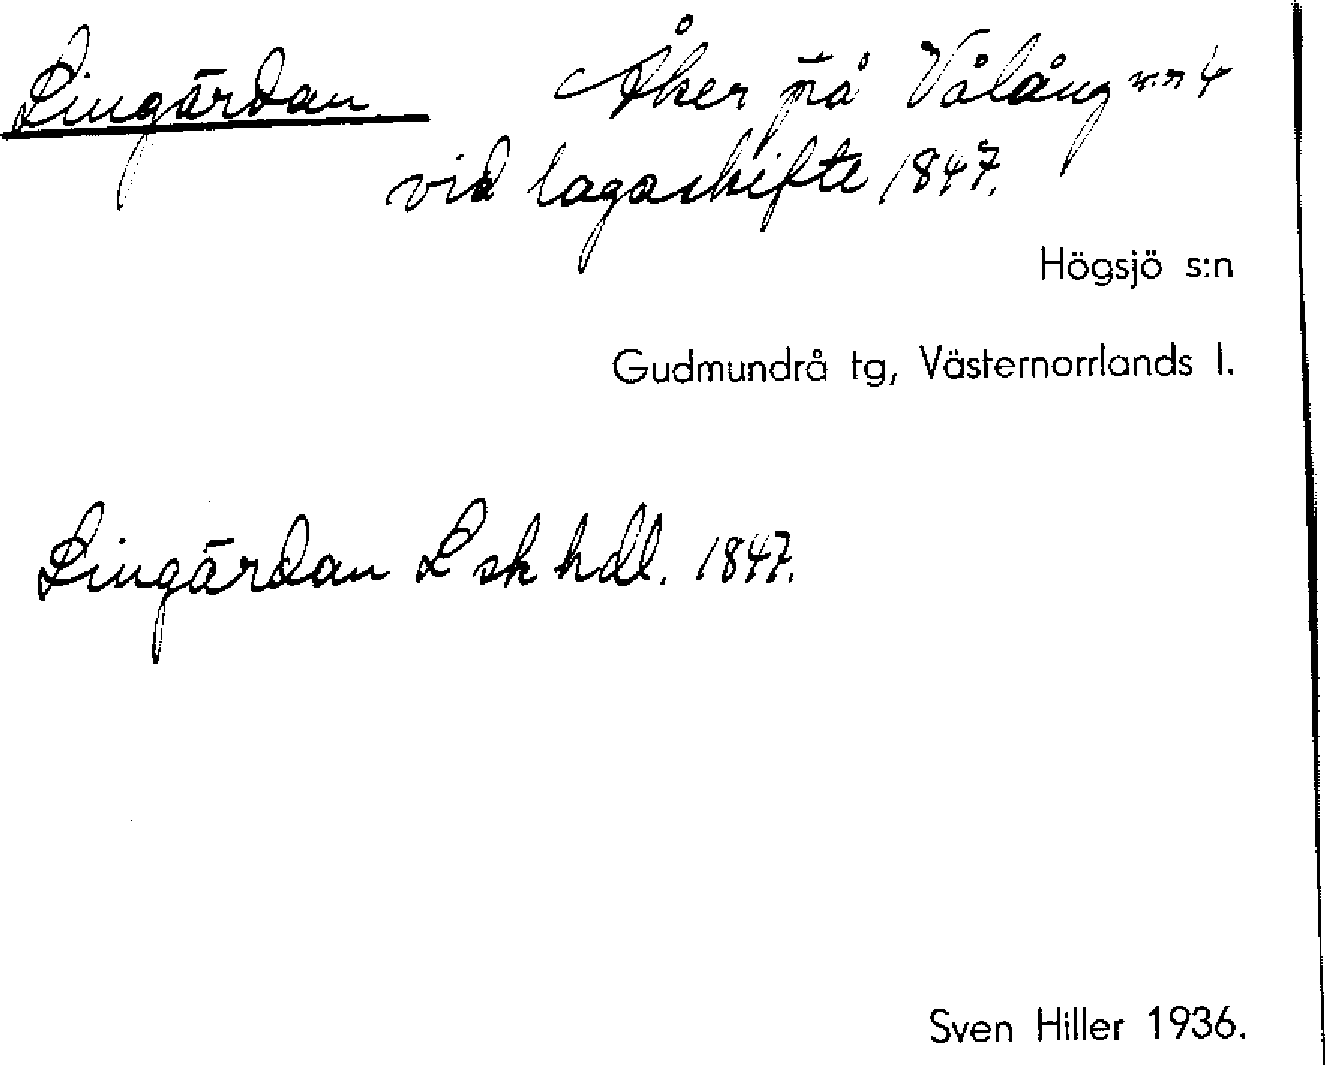 Lingärdan. Åker på Vålång n:r 4
vid lagaskifte 1847.
Högsjö s:n
Gudmundrå tg, Västernorrlands l.
Lingärdan L sk hdl. 1847.
Sven Hiller 1936.